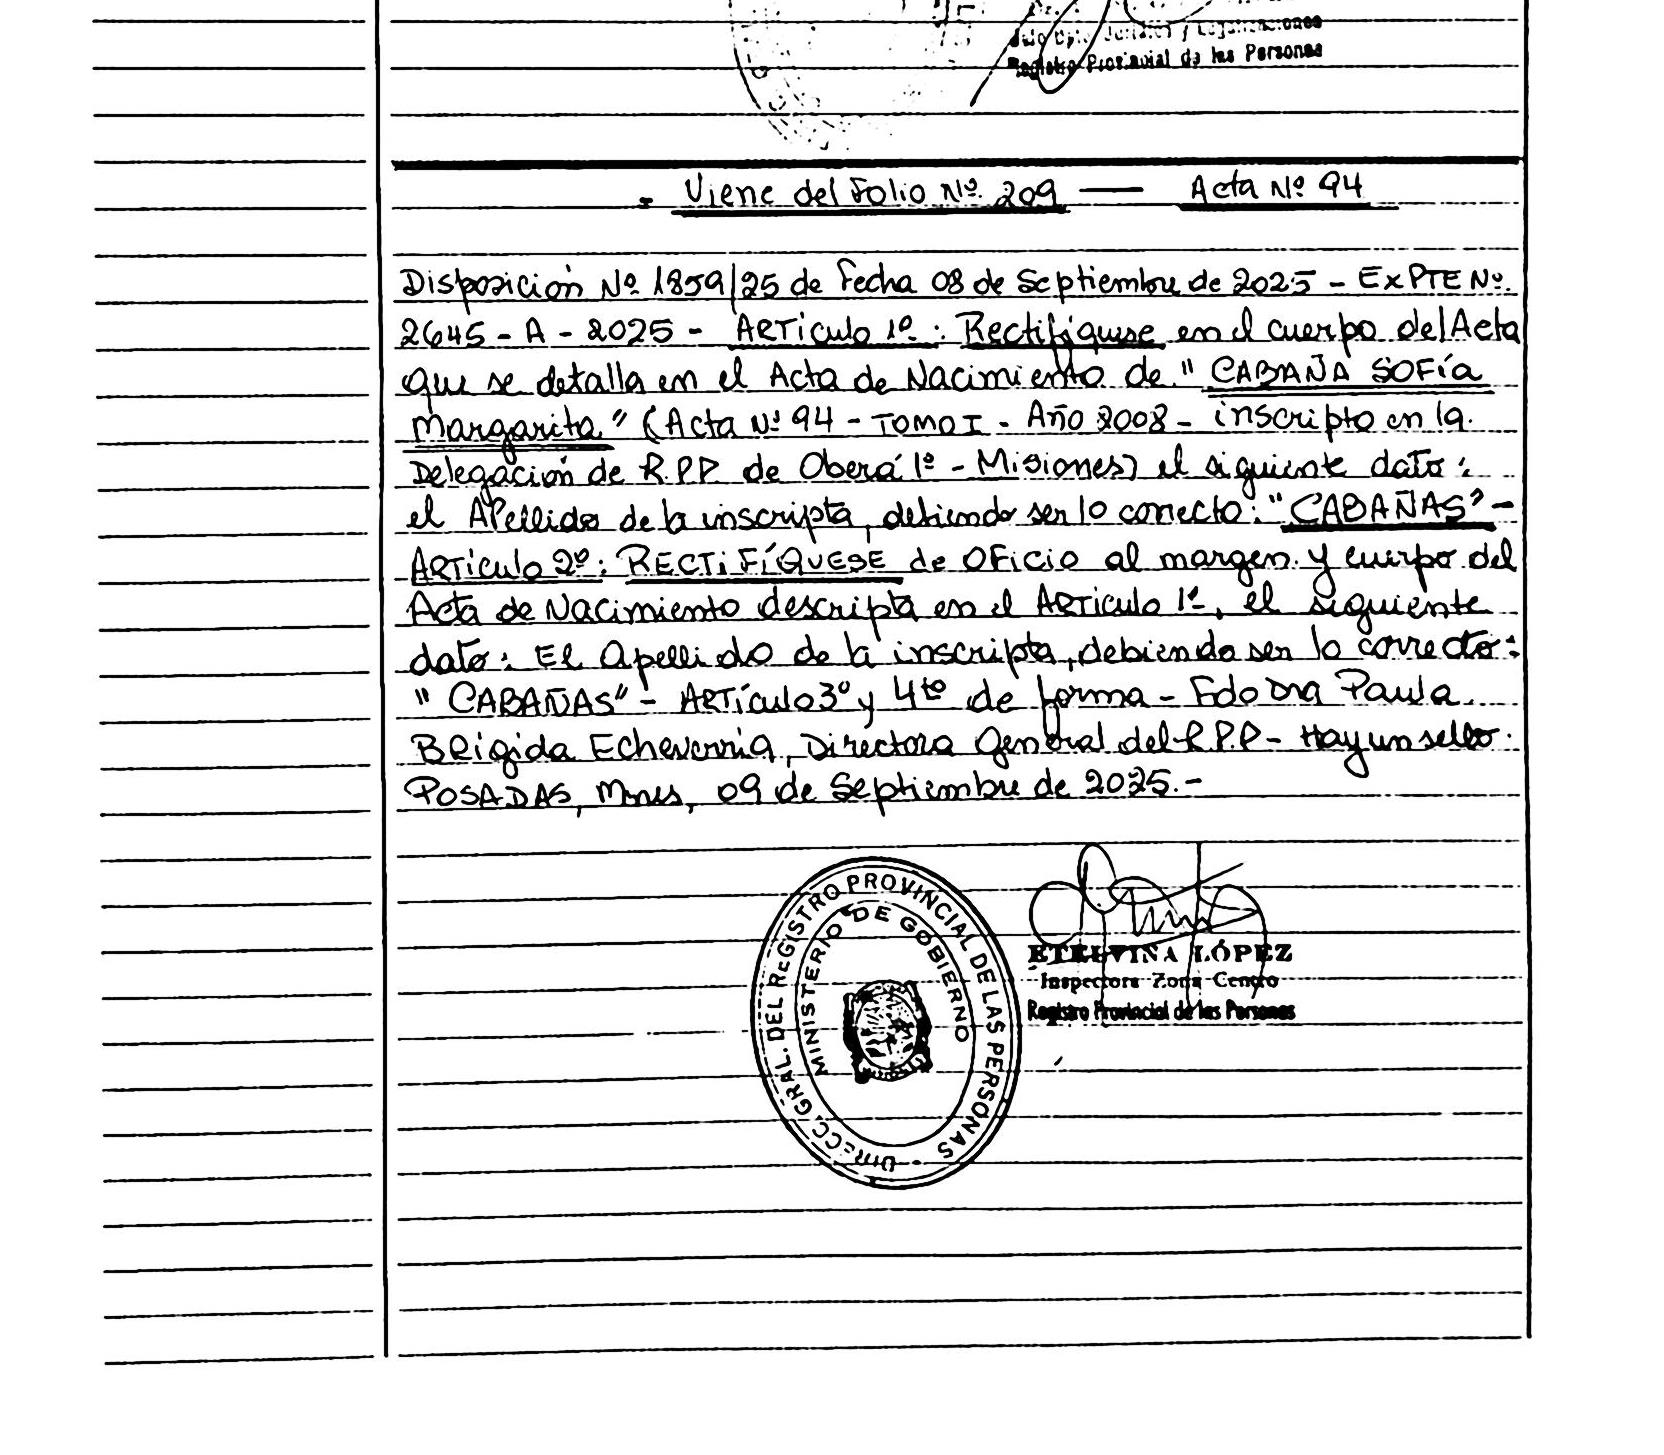 Jefe Dpto. Jurídico y Legalizaciones
Registro Provincial de las Personas
Viene del Folio Nº 209 — Acta Nº 94
Disposición Nº 1859/25 de Fecha 08 de Septiembre de 2025 - EXPTE Nº.
2645 - A - 2025 - ARTículo 1º: Rectifíquese en el cuerpo del Acta
que se detalla en el Acta de Nacimiento de "CABAÑA SOFÍA
Margarita" (Acta Nº 94 - TOMO I - Año 2008 - inscripto en la
Delegación de R.P.P. de Oberá 1º - Misiones) el siguiente dato:
el Apellido de la inscripta, debiendo ser lo correcto: "CABAÑAS" -
ARTículo 2º: RECTIFÍQUESE de OFicio al margen y cuerpo del
Acta de Nacimiento descripta en el ARTiculo 1º, el siguiente
dato: El Apellido de la inscripta, debiendo ser lo correcto:
"CABAÑAS" - ARTículo 3º y 4to de forma - Fdo Dra Paula
Brígida Echeverría, Directora General del R.P.P - Hay un sello.
POSADAS, Mnes, 09 de Septiembre de 2025.-
DIRECC. GRAL. DEL REGISTRO PROVINCIAL DE LAS PERSONAS
MINISTERIO DE GOBIERNO
ETELVINA LÓPEZ
Inspectora Zona Centro
Registro Provincial de las Personas